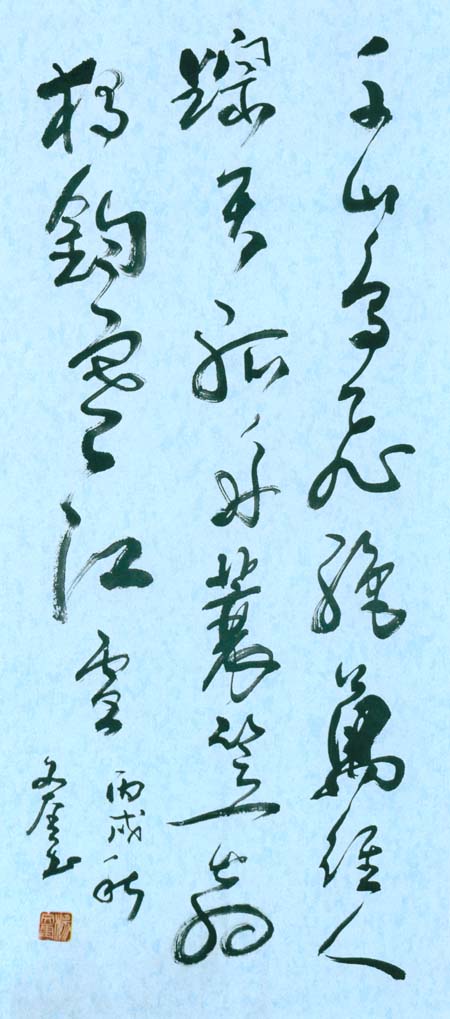 千山鳥飛絕萬徑人
踪灭孤舟蓑笠翁
獨釣寒江雪
丙戌秋
文奎书